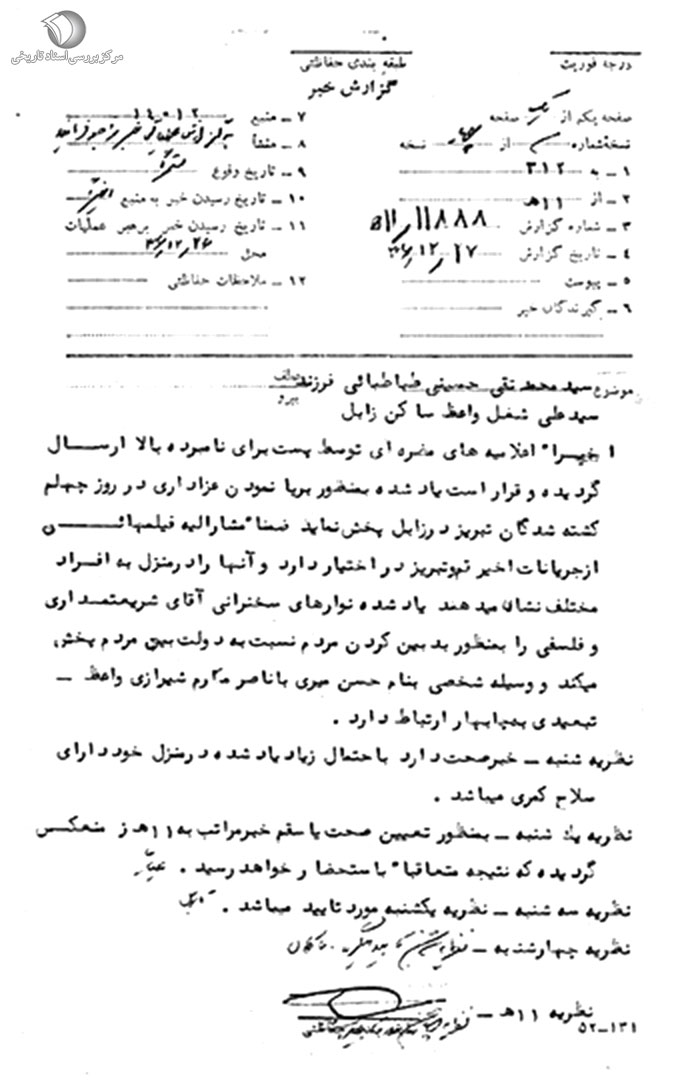 مرکز بررسی اسناد تاریخی
درجه فوریت
طبقه بندی حفاظتی
گزارش خبر
صفحه یکم از یک صفحه
نسخه شماره از نسخه
۱ ـ به ۳۱۲
۲ ـ از ۱۱ هـ
۳ ـ شماره گزارش ۱۱۸۸۸/۱۱ه
۴ ـ تاریخ گزارش ۳۶/۱۲/۲۷
۵ ـ پیوست
۶ ـ گیرندگان خبر
۷ ـ منبع ۱۴۰۱۲
۸ ـ منشأ
۹ ـ تاریخ وقوع
۱۰ ـ تاریخ رسیدن خبر به منبع
۱۱ ـ تاریخ رسیدن خبر برهبر عملیات
محل ۳۶/۱۲/۲۶
۱۲ ـ ملاحظات حفاظتی
موضوع سید محمد تقی حسینی طباطبائی فرزند
سید علی شغل واعظ ساکن زابل
پیرو
اخیراً اعلامیه های مضره ای توسط پست برای نامبرده بالا ارسال
گردیده و قرار است یاد شده بمنظور برپا نمودن عزاداری در روز چهلم
کشته شدگان تبریز در زابل پخش نماید ضمناً مشارالیه فیلمهائی
از جریانات اخیر قم و تبریز در اختیار دارد و آنها را در منزل به افراد
مختلف نشان میدهند یاد شده نوارهای سخنرانی آقای شریعتمداری
و فلسفی را بمنظور بدبین کردن مردم نسبت به دولت بین مردم پخش
میکند و وسیله شخصی بنام حسن میری با ناصر مکارم شیرازی واعظ ـ
تبعیدی بچابهار ارتباط دارد .
نظریه شنبه ـ خبر صحت دارد باحتمال زیاد یاد شده در منزل خود دارای
سلاح کمری میباشد .
نظریه یک شنبه ـ بمنظور تعیین صحت یا سقم خبر مراتب به ۱۱ هـ ز منعکس
گردیده که نتیجه متعاقباً باستحضار خواهد رسید .
نظریه سه شنبه ـ نظریه یکشنبه مورد تایید میباشد .
نظریه چهارشنبه ـ
نظریه ۱۱ هـ ـ
۵۲ـ۱۳۱